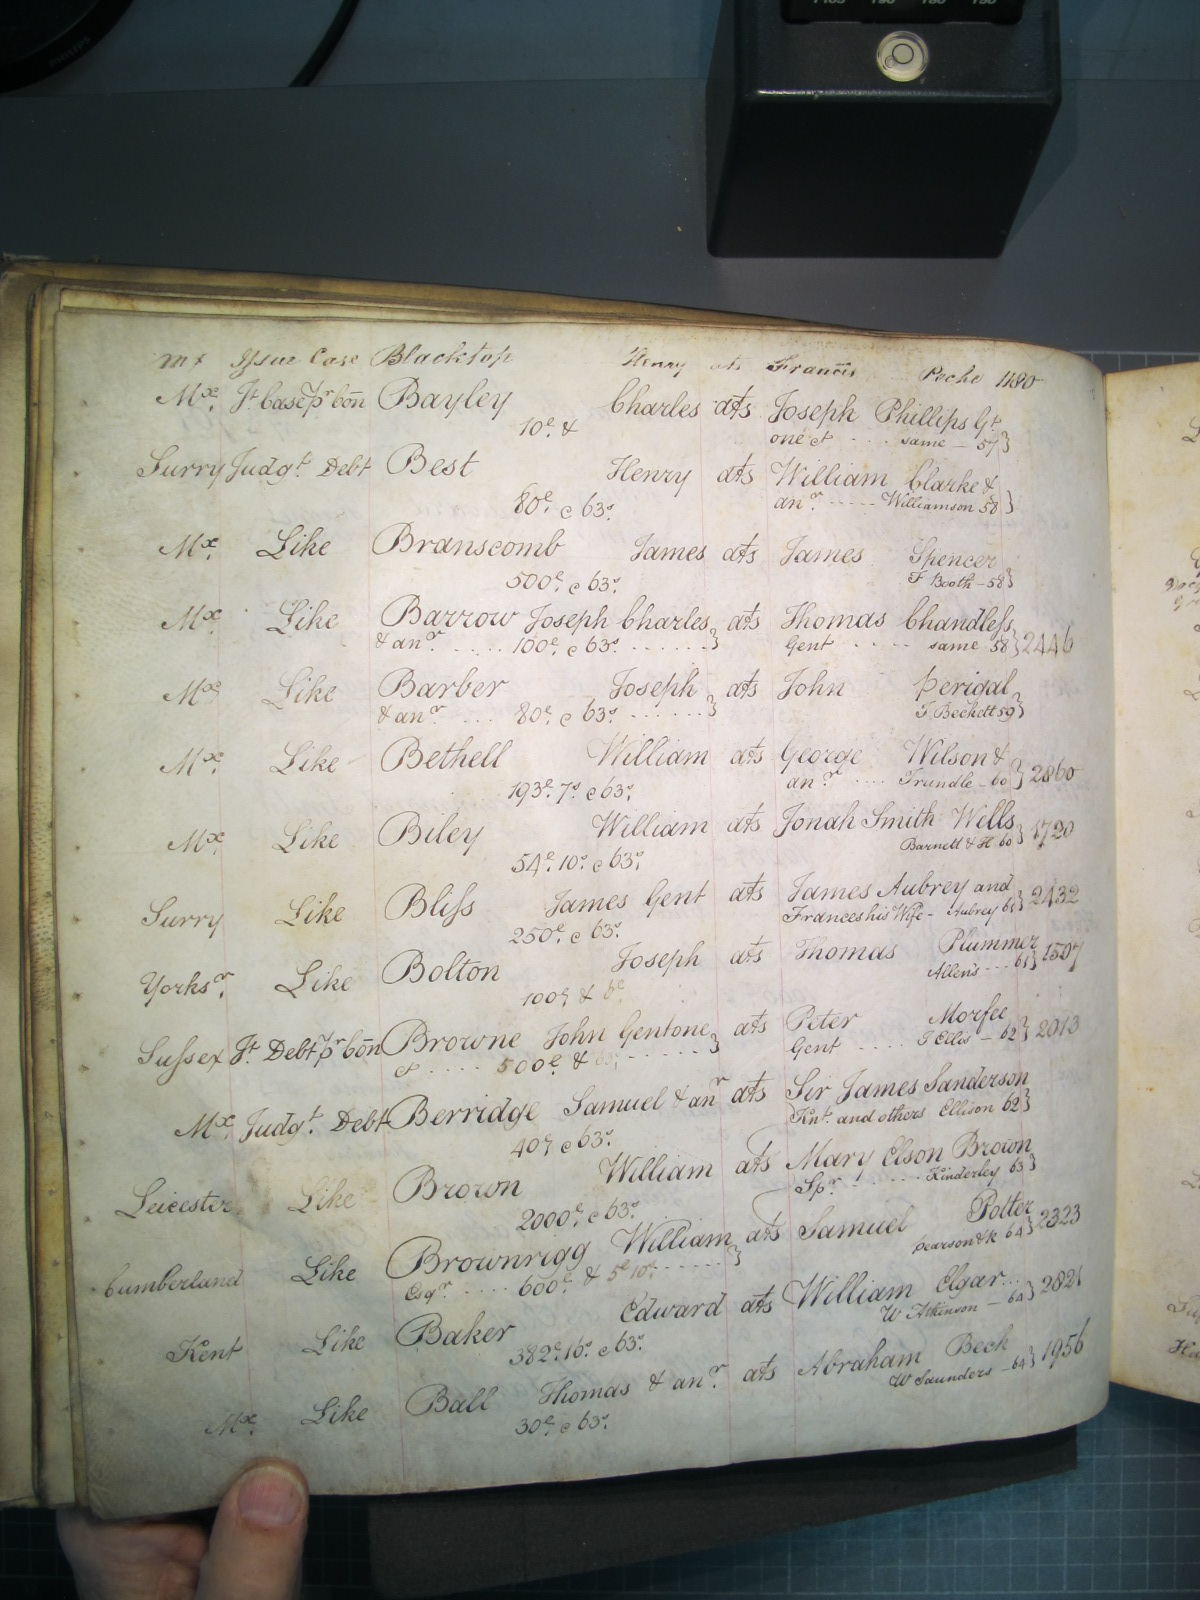 Mx Issue Case Blacktop Henry ats Francis Peche 1180
Mx. Jt Case pr bōn Bayley Charles ats Joseph Phillips Gt.
10£. & one &c .... same - 57}
Surry Judgt. Debt Best Henry ats William Clarke &
80£. c 63s. anr. ..... Williamson 58}
Mx. Like Branscomb James ats James Spencer
500£. c 63s. F Booth - 58}
Mx. Like Barrow Joseph Charles} ats Thomas Chandless
& anr. .... 100£. c 63s. ...... Gent .... same 58} 2446
Mx. Like Barber Joseph} ats John Perigal
& anr. ... 80£. c 63s. ...... T. Beckett 59}
Mx. Like Bethell William ats George Wilson &
193£. 7s. c 63s. anr. .... Trundle - 60} 2860
Mx. Like Biley William ats Jonah Smith Wells
54£. 10s. c 63s. Barnett & H 60} 1720
Surry Like Bliss James Gent ats James Aubrey and
250£. c 63s. Frances his Wife - Aubrey 61} 2432
Yorksr. Like Bolton Joseph ats Thomas Plummer
100£ & Allens --- 61} 1507
Sussex Jt. Debt pr bōn Browne John Gent one} ats Peter Morfee
&c ..... 500£. & Gent ..... T Ellis - 62} 2013
Mx. Judgt. Debt Berridge Samuel & anr ats Sir James Sanderson
40£ c 63s. Knt. and others Ellison 62}
Leicester Like Brown William ats Mary Elson Brown
2000£. c 63s. Spr. ...... Kinderley 63}
Cumberland Like Brownrigg William} ats Samuel Potter
Esqr. .... 600£. & 5£ 10s. ...... Pearson & K 64} 2323
Kent Like Baker Edward ats William Elgar...
382£. 16s. c 63s. W Atkinson - 64} 2821
Mx. Like Ball Thomas & anr. ats Abraham Beck
30£. c 63s. W Saunders - 64} 1956
PHILIPS